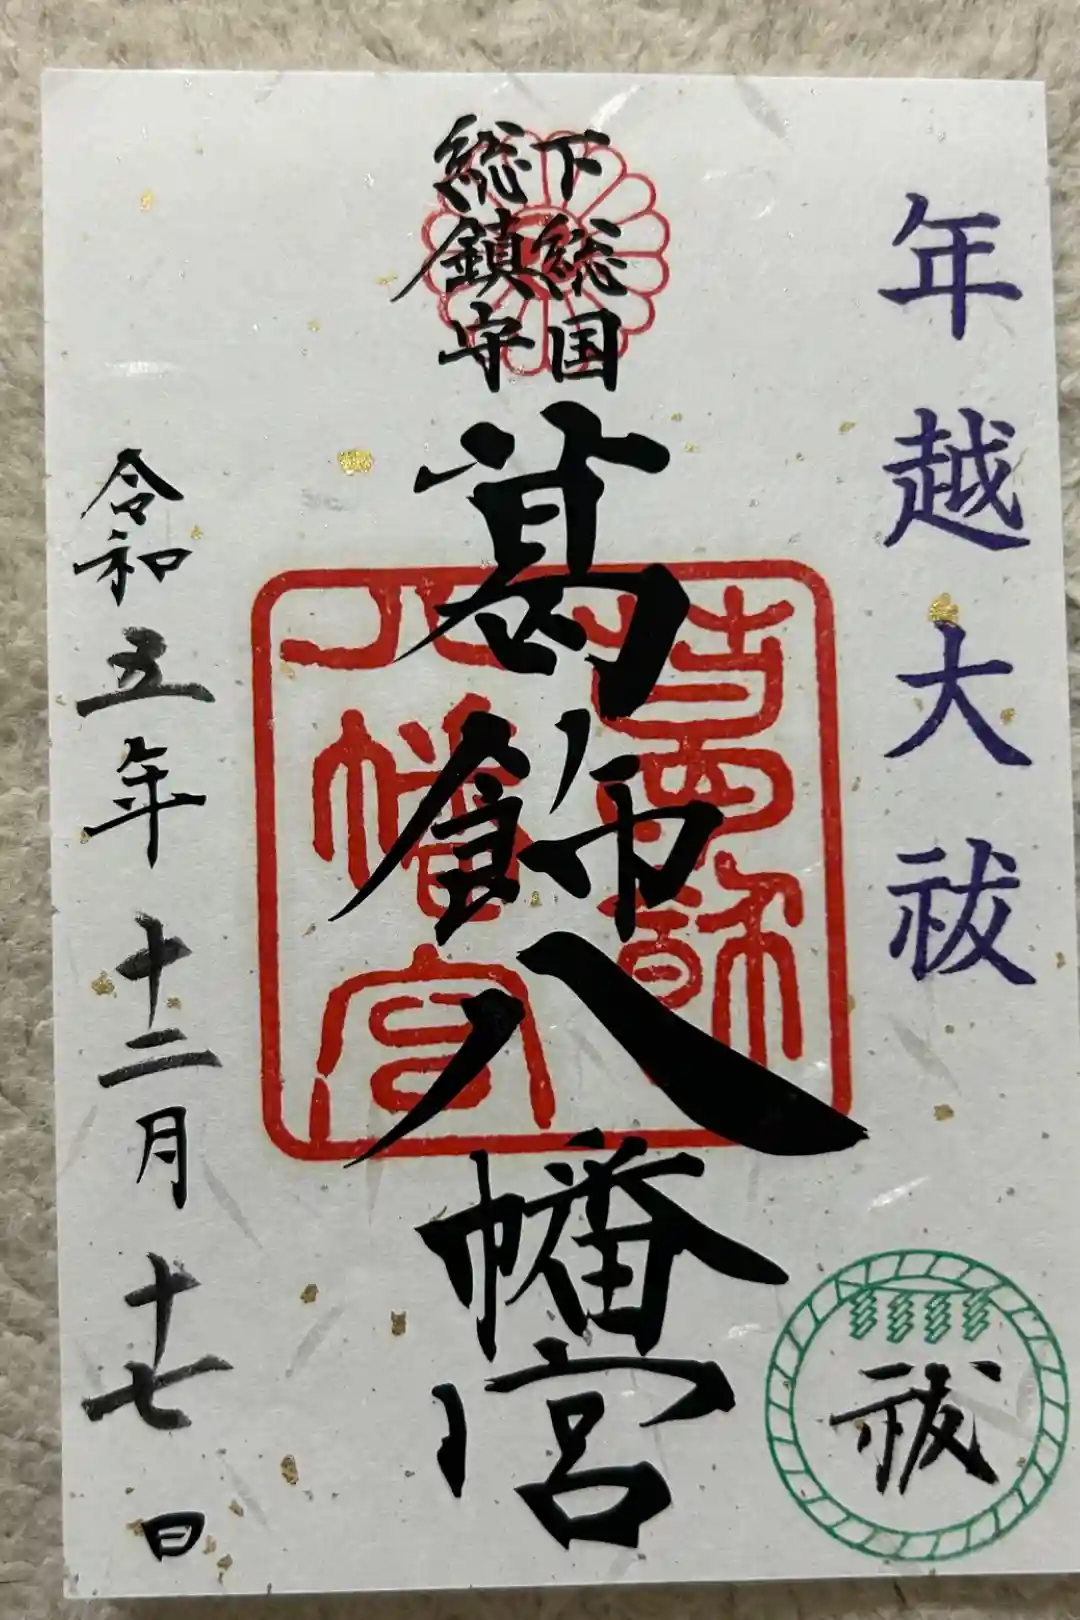 年越大祓
祓
下総国
総鎮守
葛飾八幡宮
葛飾
八幡宮
令和五年十二月十七日